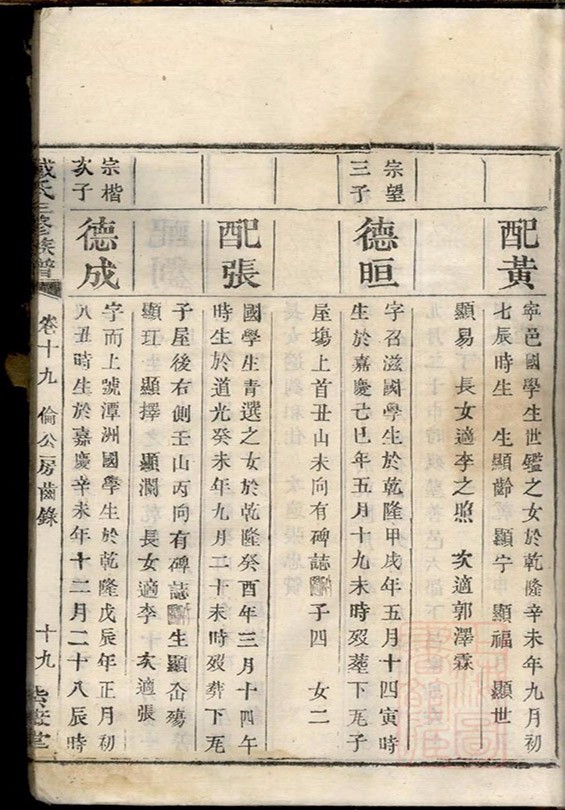 配黃
寧邑國學生世鑑之女於乾隆辛未年九月初
七辰時生 生顯齡 顯宁 顯福 顯世
顯易 長女適李之照 次適郭澤霖
宗望
三子
德晅
字召滋國學生於乾隆甲戌年五月十四寅時
生於嘉慶己巳年五月十九未時歿塟下旡子
屋塲上首丑山未向有碑誌 子四 女二
配張
國學生青選之女於乾隆癸酉年三月十四午
時生於道光癸未年九月二十未時歿葬下旡
子屋後右側壬山丙向有碑誌 生顯 殤
顯玒 顯擇 顯瀾 長女適李 次適張
宗楷
次子
德成
字而上號潭洲國學生於乾隆戊辰年正月初
八丑時生於嘉慶辛未年十二月二十八辰時
戴氏三修族譜
卷十九 倫公房齒錄
十九